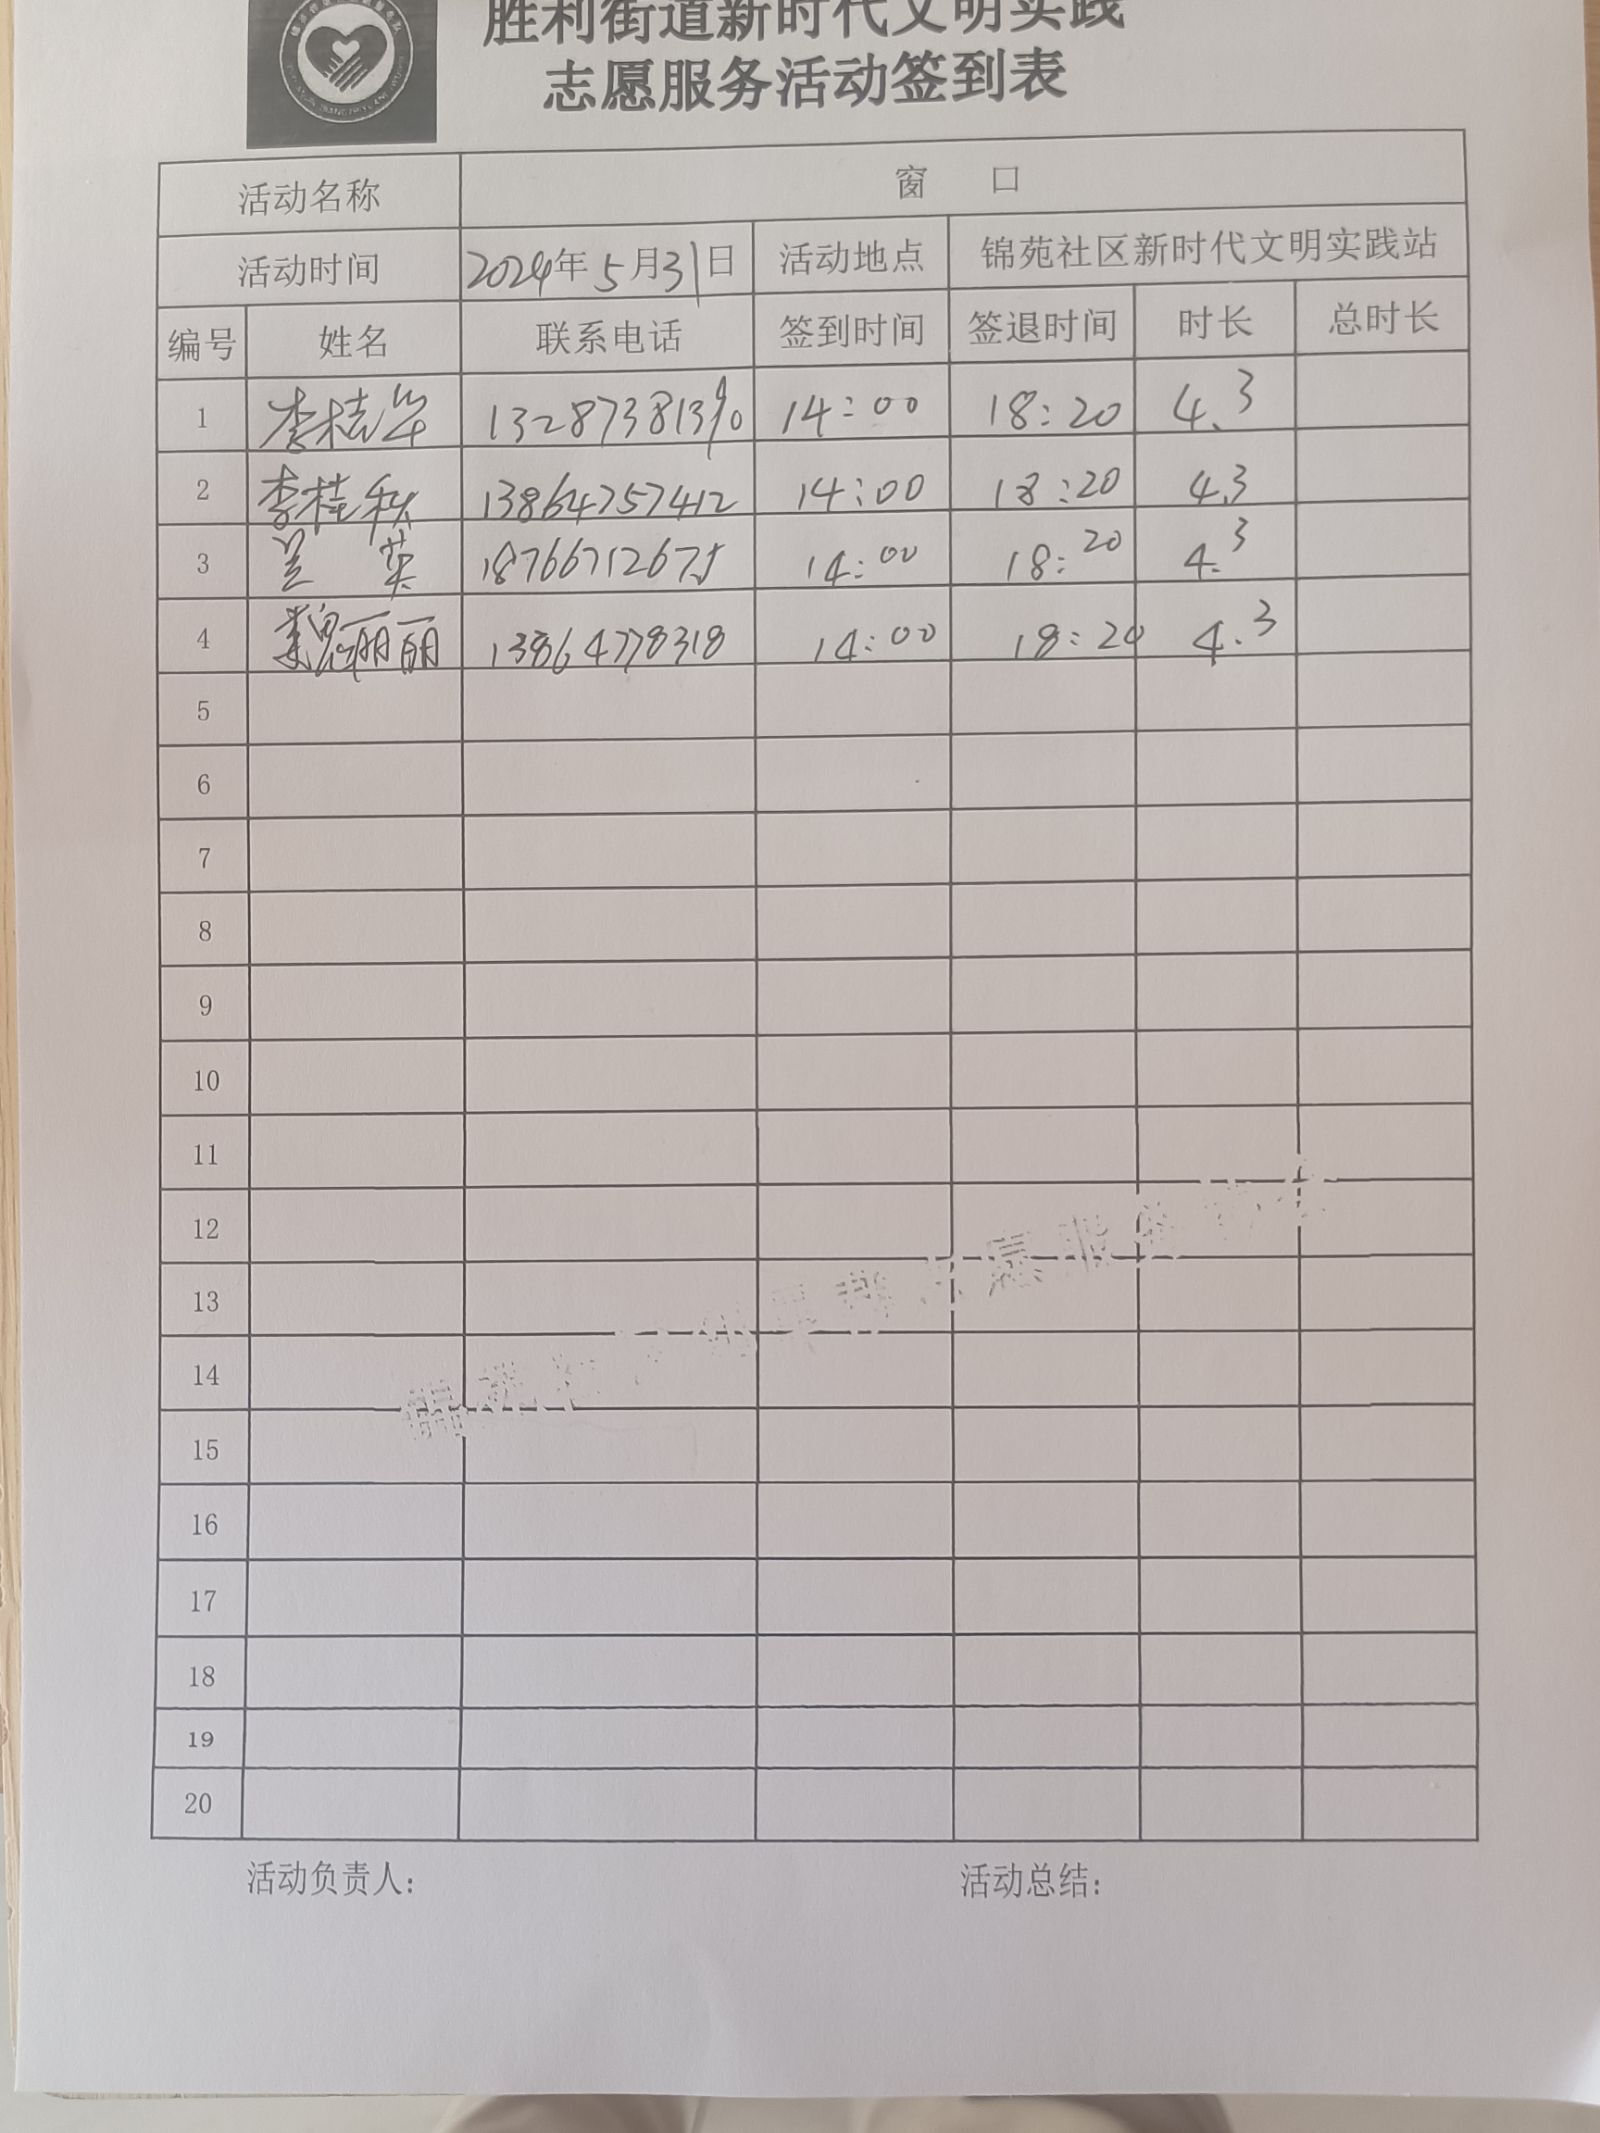 胜利街道新时代文明实践
志愿服务活动签到表
活动名称 窗 口
活动时间 2024年5月31日 活动地点 锦苑社区新时代文明实践站
编号 姓名 联系电话 签到时间 签退时间 时长 总时长
1 李桂华 14:00 18:20 4.3
2 李桂秋 13864757412 14:00 18:20 4.3
3 兰 英 18766712675 14:00 18:20 4.3
4 魏丽丽 13864778318 14:00 18:20 4.3
5
6
7
8
9
10
11
12
13
14
15
16
17
18
19
20
活动负责人: 活动总结: